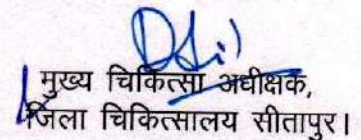 मुख्य चिकित्सा अधीक्षक,
जिला चिकित्सालय सीतापुर।